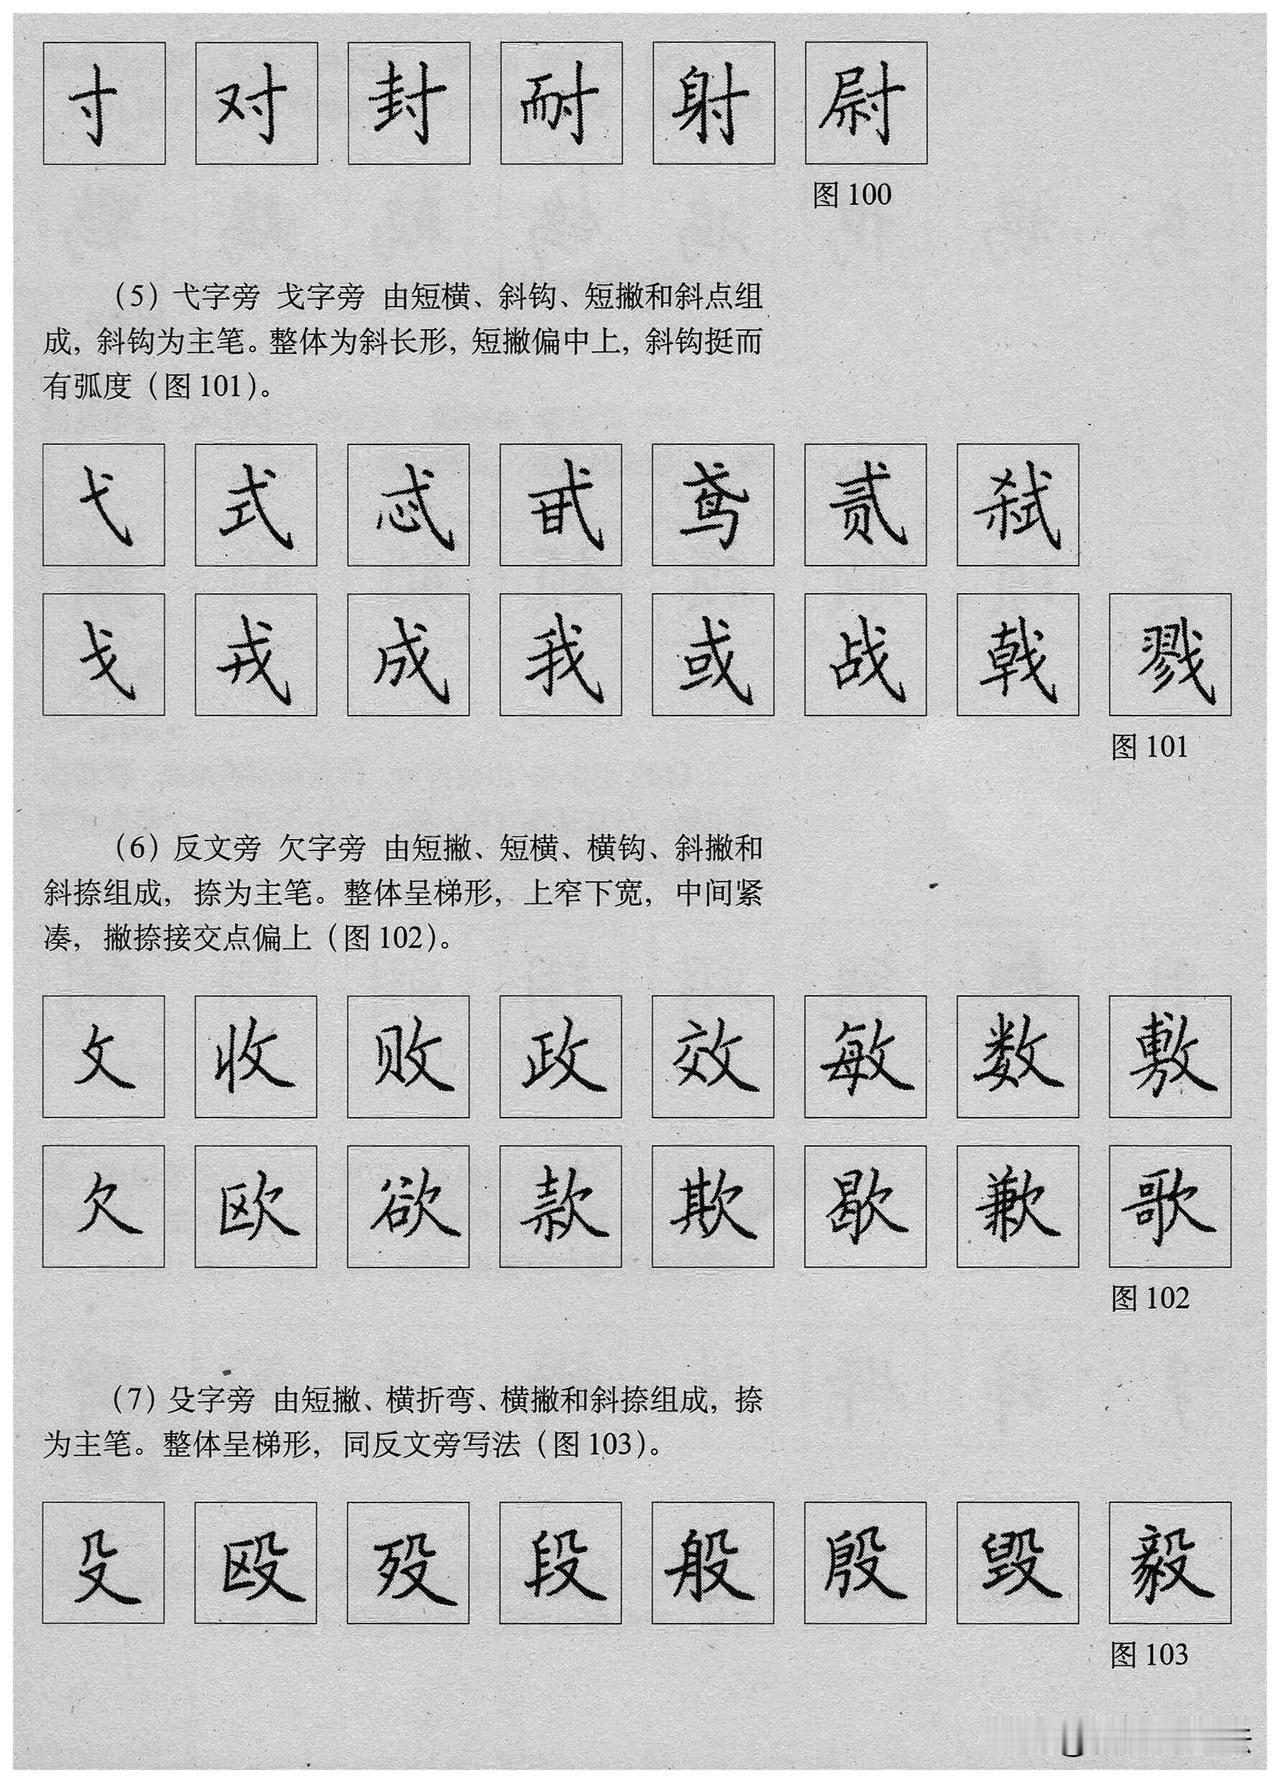 寸 对 封 耐 射 尉
图 100
（5）弋字旁 戈字旁 由短横、斜钩、短撇和斜点组
成，斜钩为主笔。整体为斜长形，短撇偏中上，斜钩挺而
有弧度（图 101）。
弋 式 忒 甙 鸢 贰 弑
戈 戎 成 我 或 战 戟 戮
图 101
（6）反文旁 欠字旁 由短撇、短横、横钩、斜撇和
斜捺组成，捺为主笔。整体呈梯形，上窄下宽，中间紧
凑，撇捺接交点偏上（图 102）。
攵 收 败 政 效 敏 数 敷
欠 欧 欲 款 欺 歇 歉 歌
图 102
（7）殳字旁 由短撇、横折弯、横撇和斜捺组成，捺
为主笔。整体呈梯形，同反文旁写法（图 103）。
殳 殴 殁 段 般 殷 毁 毅
图 103